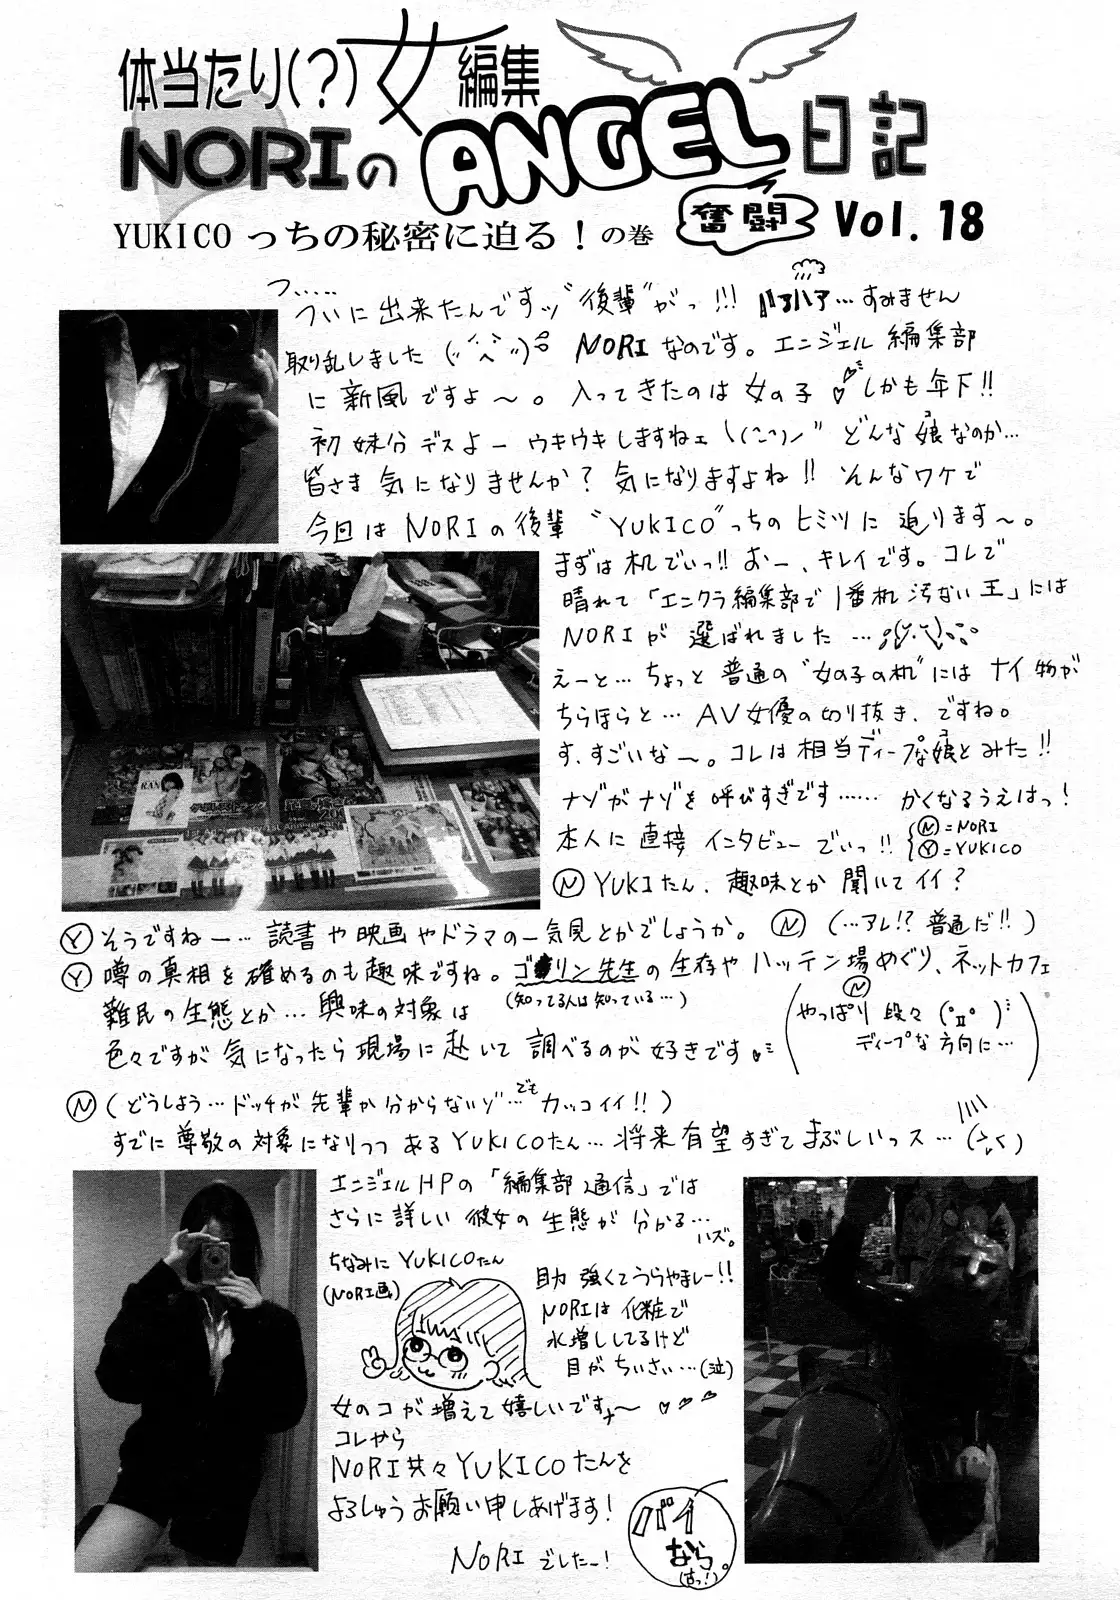 体当たり(?)女編集
NORIのANGEL日記
奮闘
Vol. 18
YUKICOっちの秘密に迫る！の巻
つ……
ついに出来たんですッ"後輩"がっ!!! ハァハァ…すみません
取り乱しました NORIなのです。エンジェル編集部
に新風ですよ～。入ってきたのは女の子♡しかも年下!!
初妹分デスよー ウキウキしますねェ どんな娘なのか…
皆さま気になりませんか？気になりますよね!! そんなワケで
今回はNORIの後輩"YUKICO"っちのヒミツに迫ります～。
まずは机でいっ!! おー、キレイです。コレで
晴れて「エンクラ編集部で1番机汚ない王」には
NORIが選ばれました…
えーと…ちょっと普通の"女の子の机"にはナイ物が
ちらほらと…AV女優の切り抜き、ですね。
す、すごいな～。コレは相当ディープな娘とみた!!
ナゾがナゾを呼びすぎです…… かくなるうえはっ！
本人に直接インタビューでいっ!!
Ⓝ=NORI
Ⓨ=YUKICO
Ⓝ YUKIたん、趣味とか聞いてイイ？
Ⓨ そうですねー…読書や映画やドラマの一気見とかでしょうか。 Ⓝ (…アレ!? 普通だ!!)
Ⓨ 噂の真相を確めるのも趣味ですね。ゴ リン先生の生存やハッテン場めぐり、ネットカフェ
(知ってる人は知っている…)
難民の生態とか…興味の対象は
色々ですが気になったら現場に赴いて調べるのが好きです♥
Ⓝ
やっぱり段々(°д°)
ディープな方向に…
Ⓝ (どうしよう…ドッチが先輩か分からないゾ…でもカッコイイ!!)
すでに尊敬の対象になりつつあるYUKICOたん…将来有望すぎてまぶしいっス…
エンジェルHPの「編集部通信」では
さらに詳しい彼女の生態が分かる…
ハズ。
ちなみにYUKICOたん
(NORI画)
目力強くてうらやましー!!
NORIは化粧で
水増ししてるけど
目がちいさい…(泣)
女のコが増えて嬉しいです～♡♡♡
コレから
NORI共々YUKICOたんを
よろしゅうお願い申しあげます！
NORIでしたー！
バイ
なら
(古っ!)。
RAN